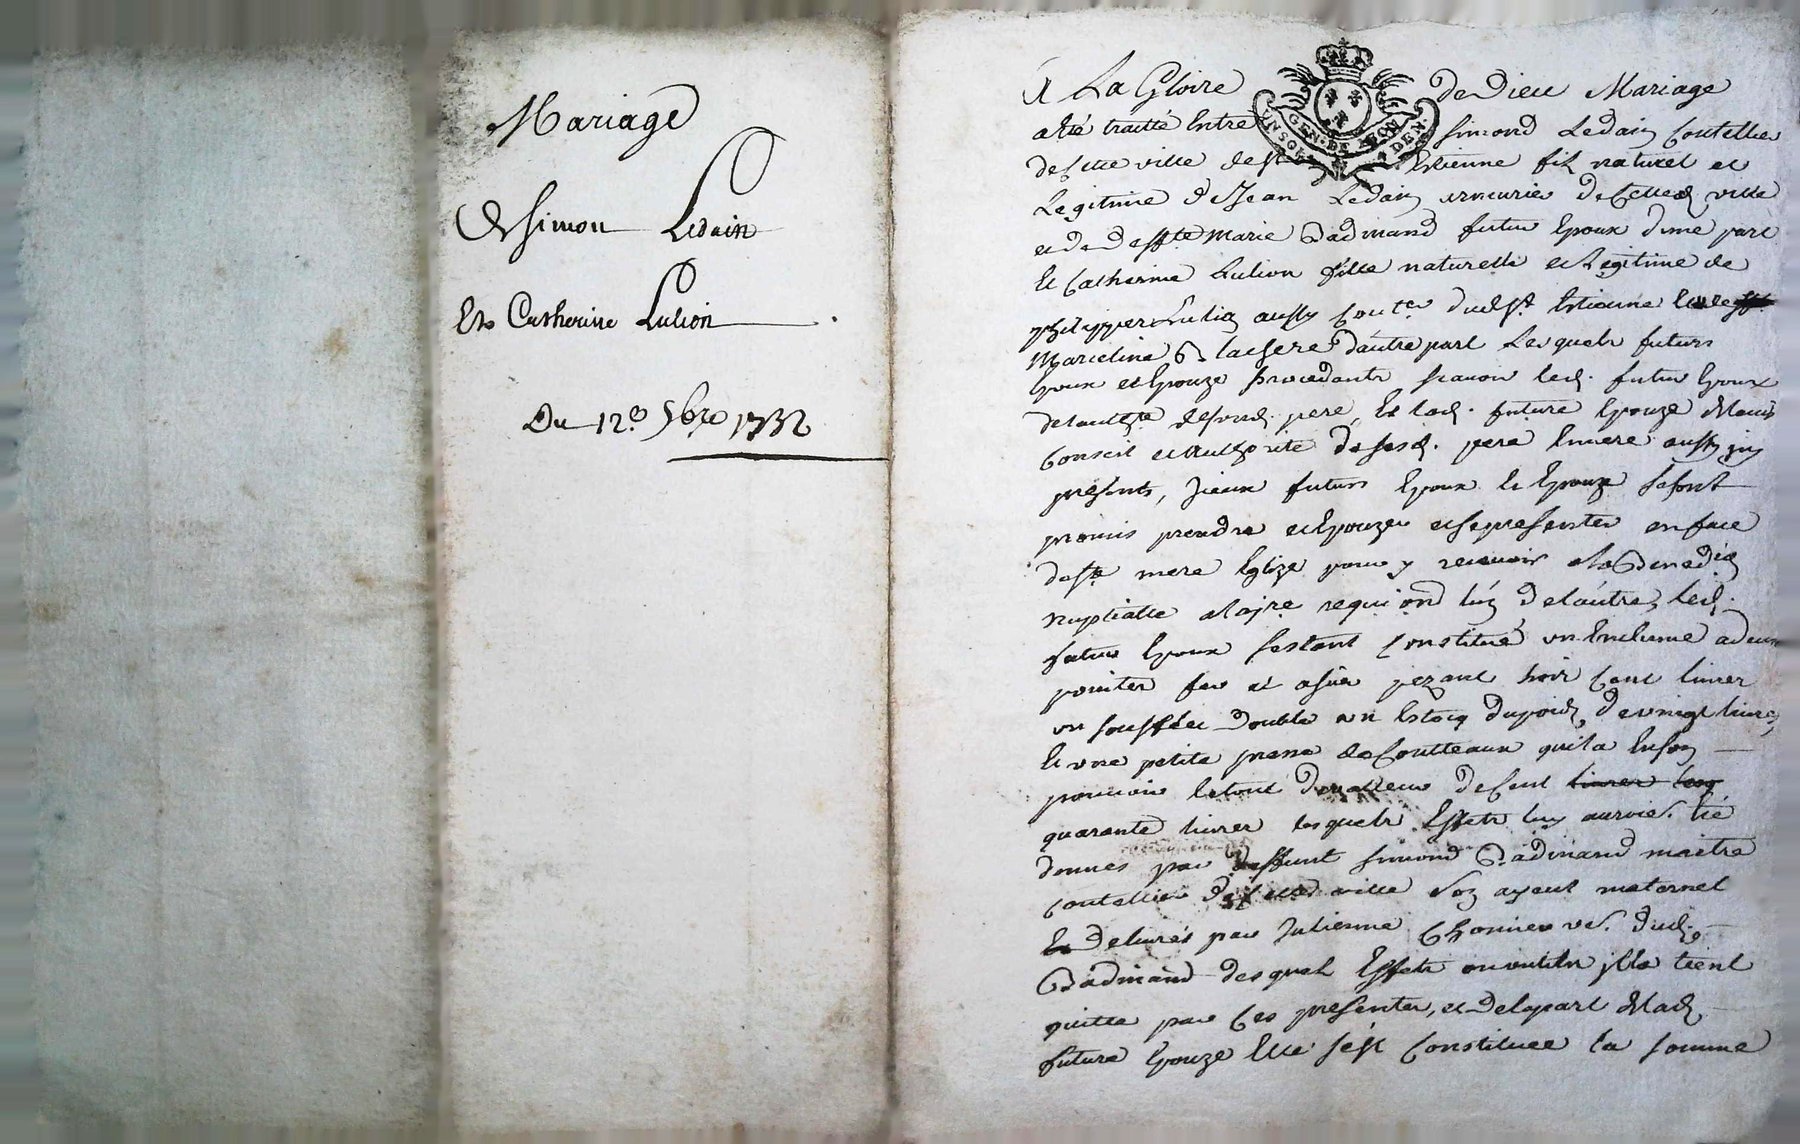 Mariage
De Simon Ledain
Et Catherine Lulion
Du 12e 9bre 1732
A La Gloire de Dieu Mariage
a eté traitté Entre Simond Ledain Coutellier
de cette ville de St Estienne filz naturel et
Legitime de Jean Ledain armurier de cette ville
et de deffte Marie Badinand futur Epoux d'une part
Et Catherine Lulion fille naturelle et Legitime de
philipper Lulion aussy Coutr dud St Estienne
Marceline d'autre part Lesquels futurs
Epoux et Epouze procedants scavoir led. futur Epoux
de lauthte de sond. pere Et lad. future Epouze de l'avis
Conseil et authorité de sesd. pere Et mere aussy icy
presents, Iceux futurs Epoux et Epouze se sont
promis prendre et Epouzer et se presenter en face
de Ste mere Eglize pour y recevoir la Benedion
nuptialle a la pre requion L'un de l'autre, led.
futur Epoux s'estant Constitué un Enclume a deux
pointes fer et assier pezant trois Cent livres
un soufflet double un Estocq du poid de vingt livres,
Et une petite presse de Coutteaux qu'il a En son
pouvoir le tout de valleur de Cent livres
quarante livres lesquels Effets luy auroient été
donnés par deffunt Simond Badinand maitre
coutellier de cette ville son ayeul maternel
Et delivrés par Julienne Chomier ve. dud.
Badinand desquels Effets il la tient
quitte par Ces presentes, et de la part de lad.
future Epouze Elle s'est Constituée la somme